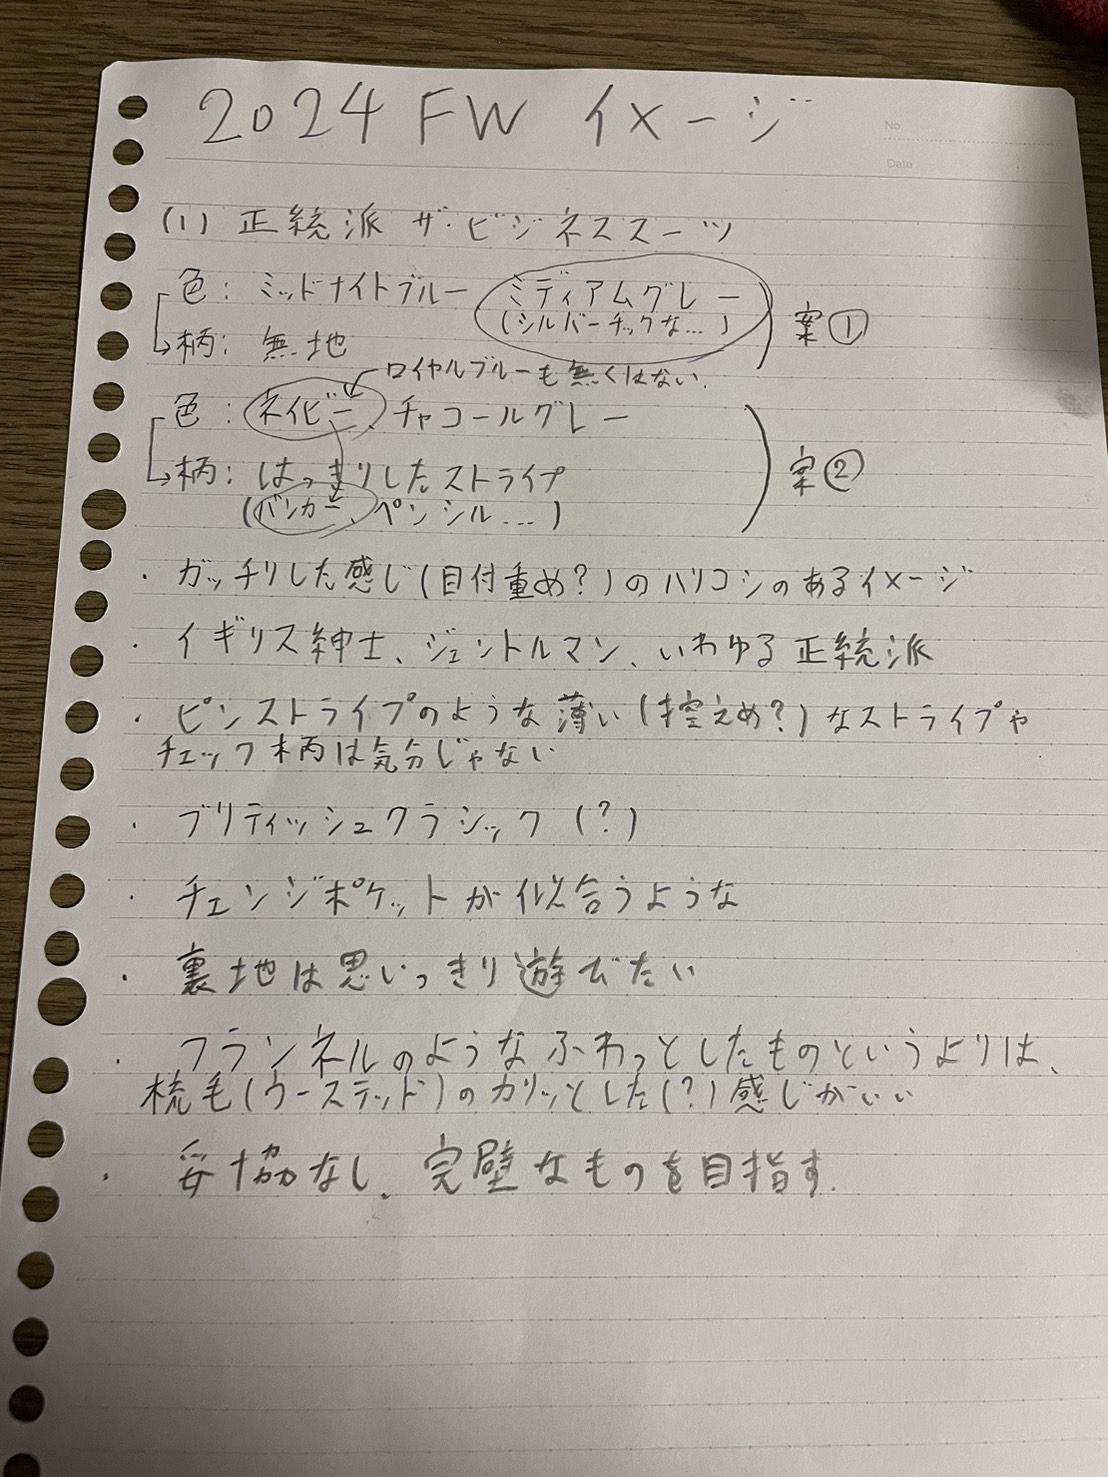 2024 FW イメージ
No.
Date
(1) 正統派 ザ・ビジネススーツ
色: ミッドナイトブルー ミディアムグレー
(シルバーチックな…)
案①
柄: 無地
ロイヤルブルーも無くはない.
色: ネイビー チャコールグレー
柄: はっきりしたストライプ
案②
(バンカー、ペンシル…)
・ガッチリした感じ(目付重め?)のハリコシのあるイメージ
・イギリス紳士、ジェントルマン、いわゆる正統派
・ピンストライプのような薄い(控えめ?)なストライプや
チェック柄は気分じゃない
・ブリティッシュクラシック(?)
・チェンジポケットが似合うような
・裏地は思いっきり遊びたい
・フランネルのようなふわっとしたものというよりは、
梳毛(ウーステッド)のカリッとした(?)感じがいい
・妥協なし、完璧なものを目指す.